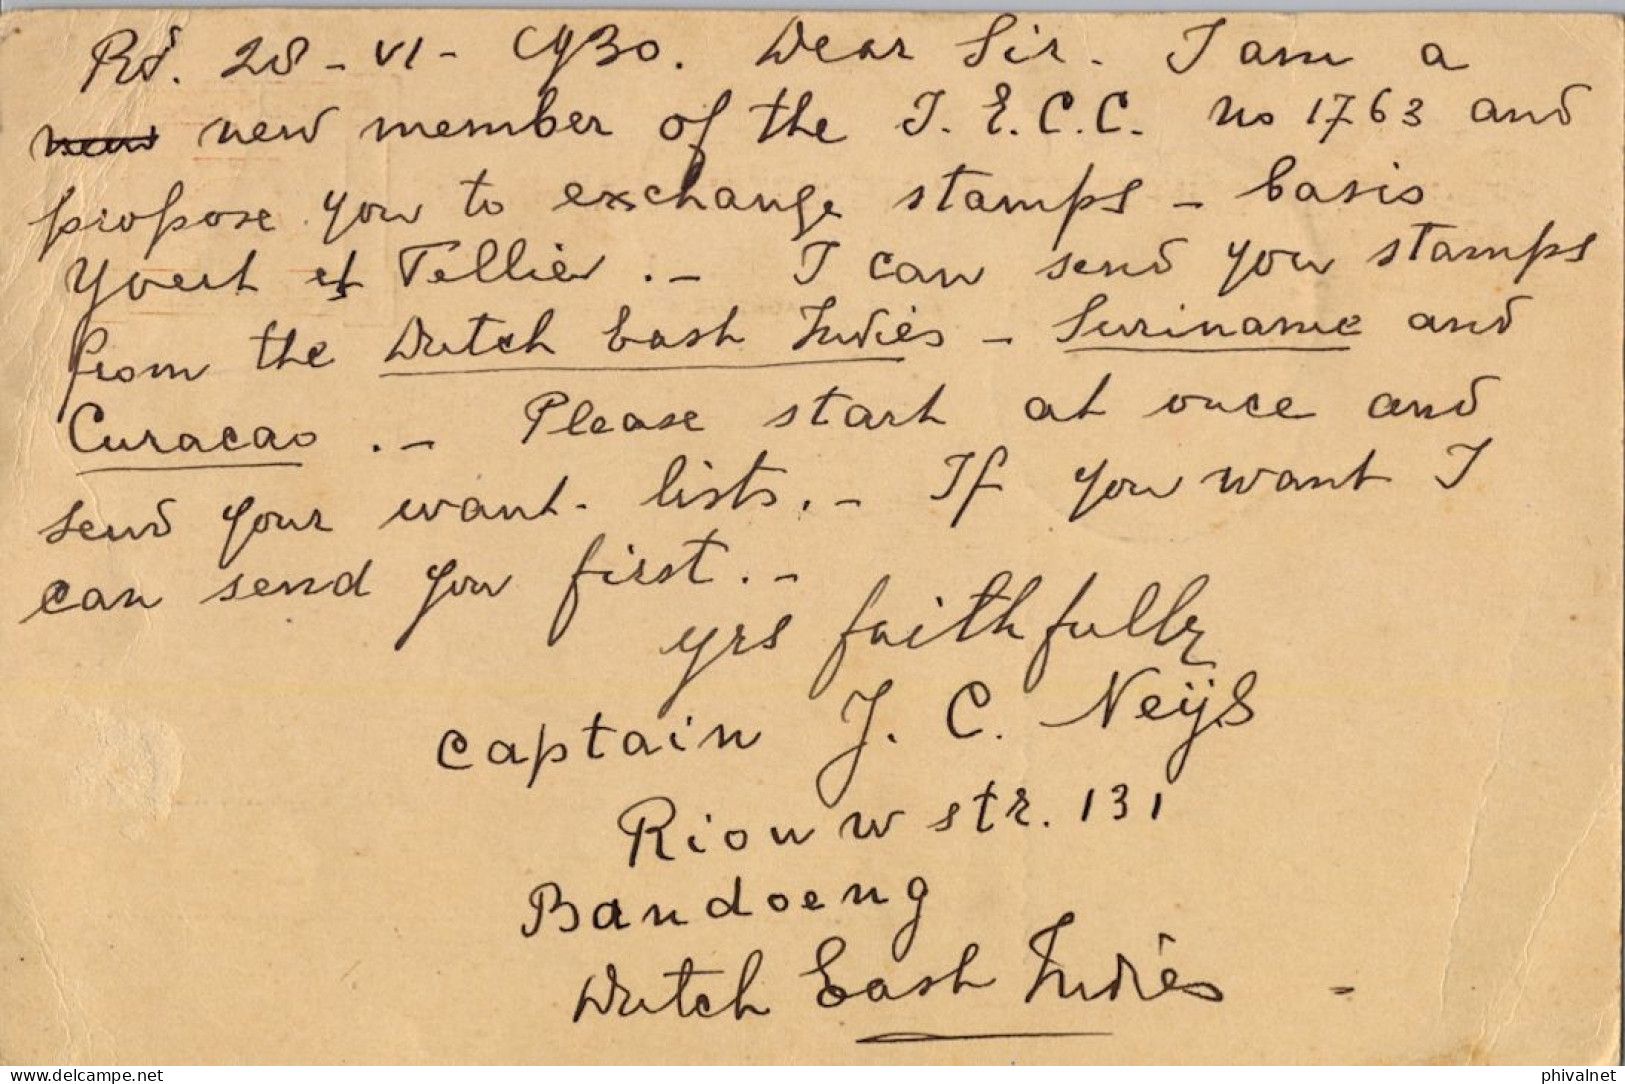 Bd. 28 - VI - 1930. Dear Sir. I am a
new new member of the I.E.C.C. no 1763 and
propose you to exchange stamps - basis
Yvert et Tellier. - I can send you stamps
from the Dutch East Indiës - Suriname and
Curacao. - Please start at once and
send your want- lists. - If you want I
can send you first. -
yrs faithfully
Captain J. C. Neijs
Riouwstr. 131
Bandoeng
Dutch East Indiës -
delcampe.net
phivalnet